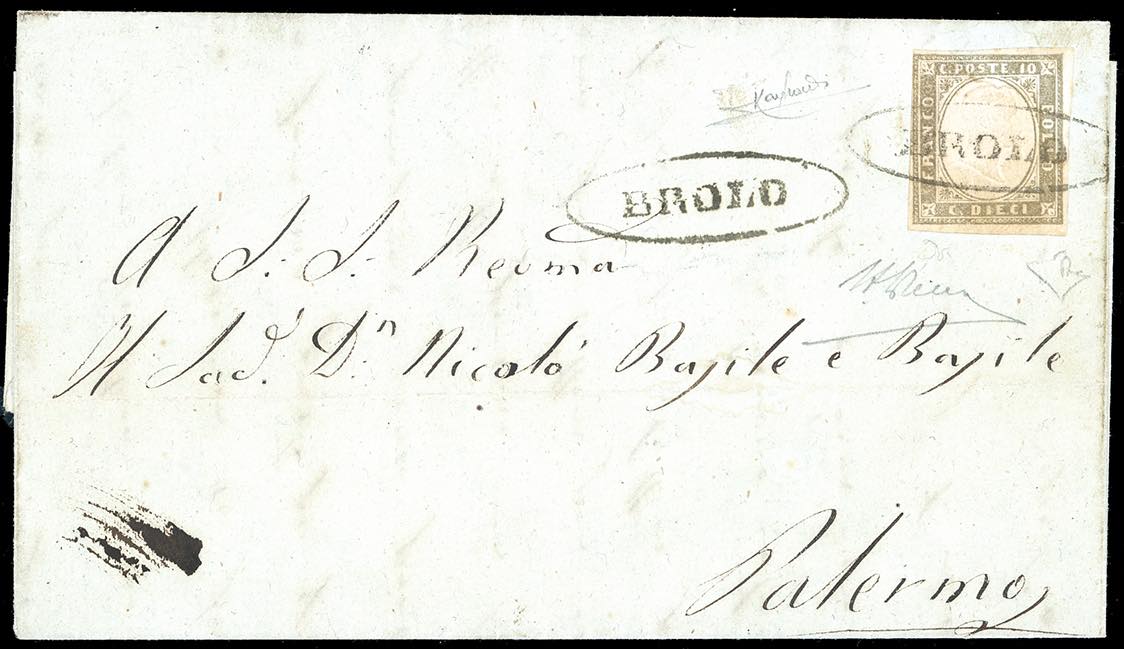 C. POSTE. 10
FRANCO
BOLLO
C. DIECI
BROLO
BROLO
A S. S. Reoma
Il Sad. Dn Nicolò Basile e Basile
Palermo